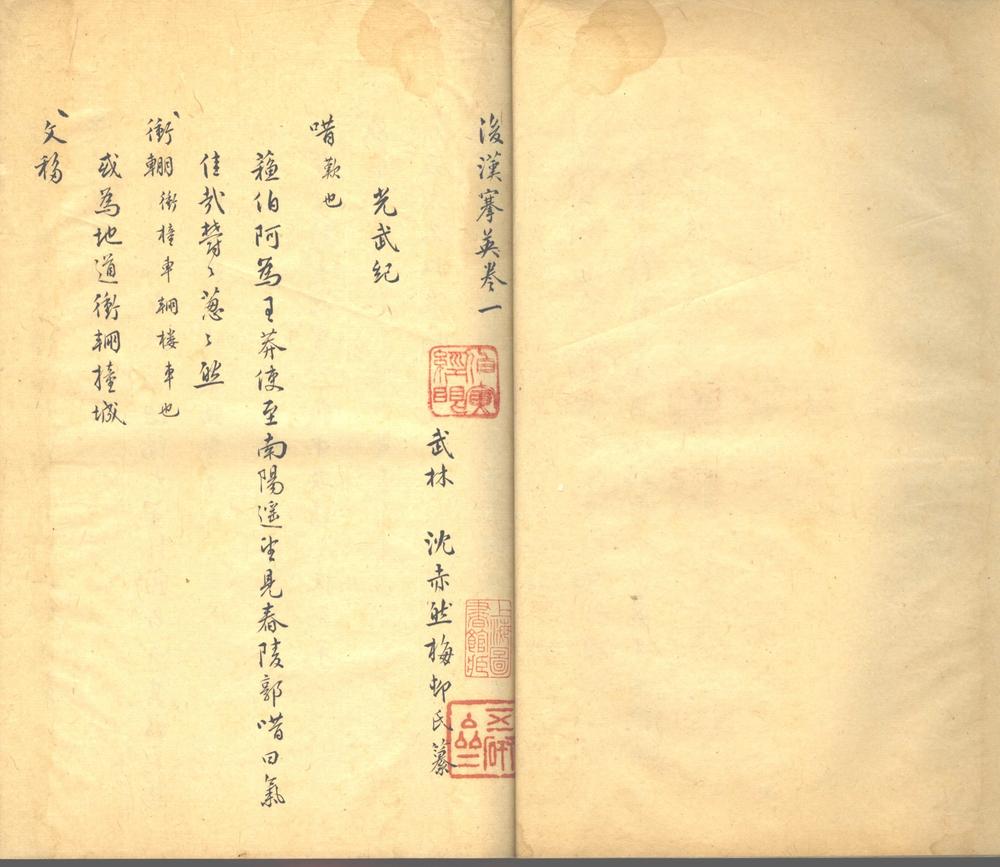 後漢搴英卷一
武林 沈赤然梅邨氏纂
光武紀
唶歎也
蘓伯阿為王莽使至南陽遥望見舂陵郭唶曰氣
佳哉鬱〻葱〻然
衝輣衝撞車輣楼車也
或為地道衝輣撞城
文移
上海圖書館藏